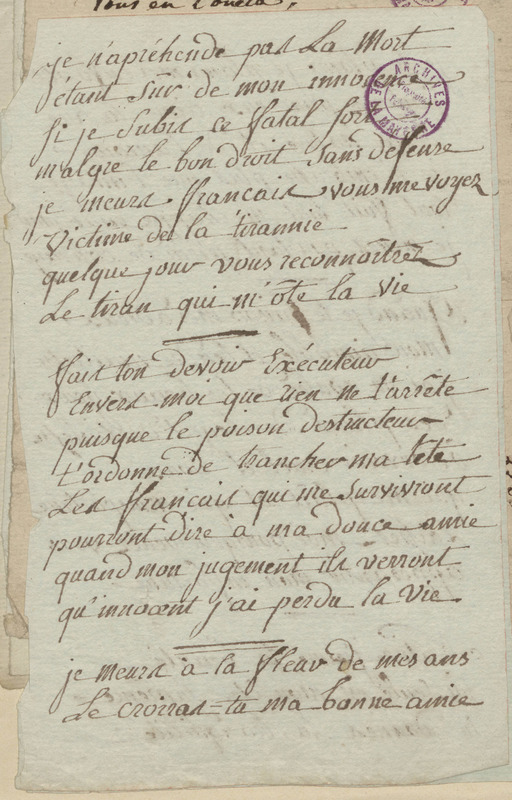 vous en
je n'apréhende pas La Mort
étant Sûr de mon innocence
Si je Subis ce fatal sort
malgré le bon droit Sans défense
je meurs français vous me voyez
Victime de la tirannie
quelque jour vous reconnoîtrez
Le tiran qui m'ôte la vie
fais ton devoir Exécuteur
Envers moi que rien ne t'arrête
puisque le poison destructeur
t'ordonne de trancher ma tete
Les français qui me Survivront
pourront dire a ma douce amie
quand mon jugement ils verront
qu'innocent j'ai perdu la Vie
je meurs à la fleur de mes ans
Le croiras-tu ma bonne amie
ARCHIVES
DE LA MARNE